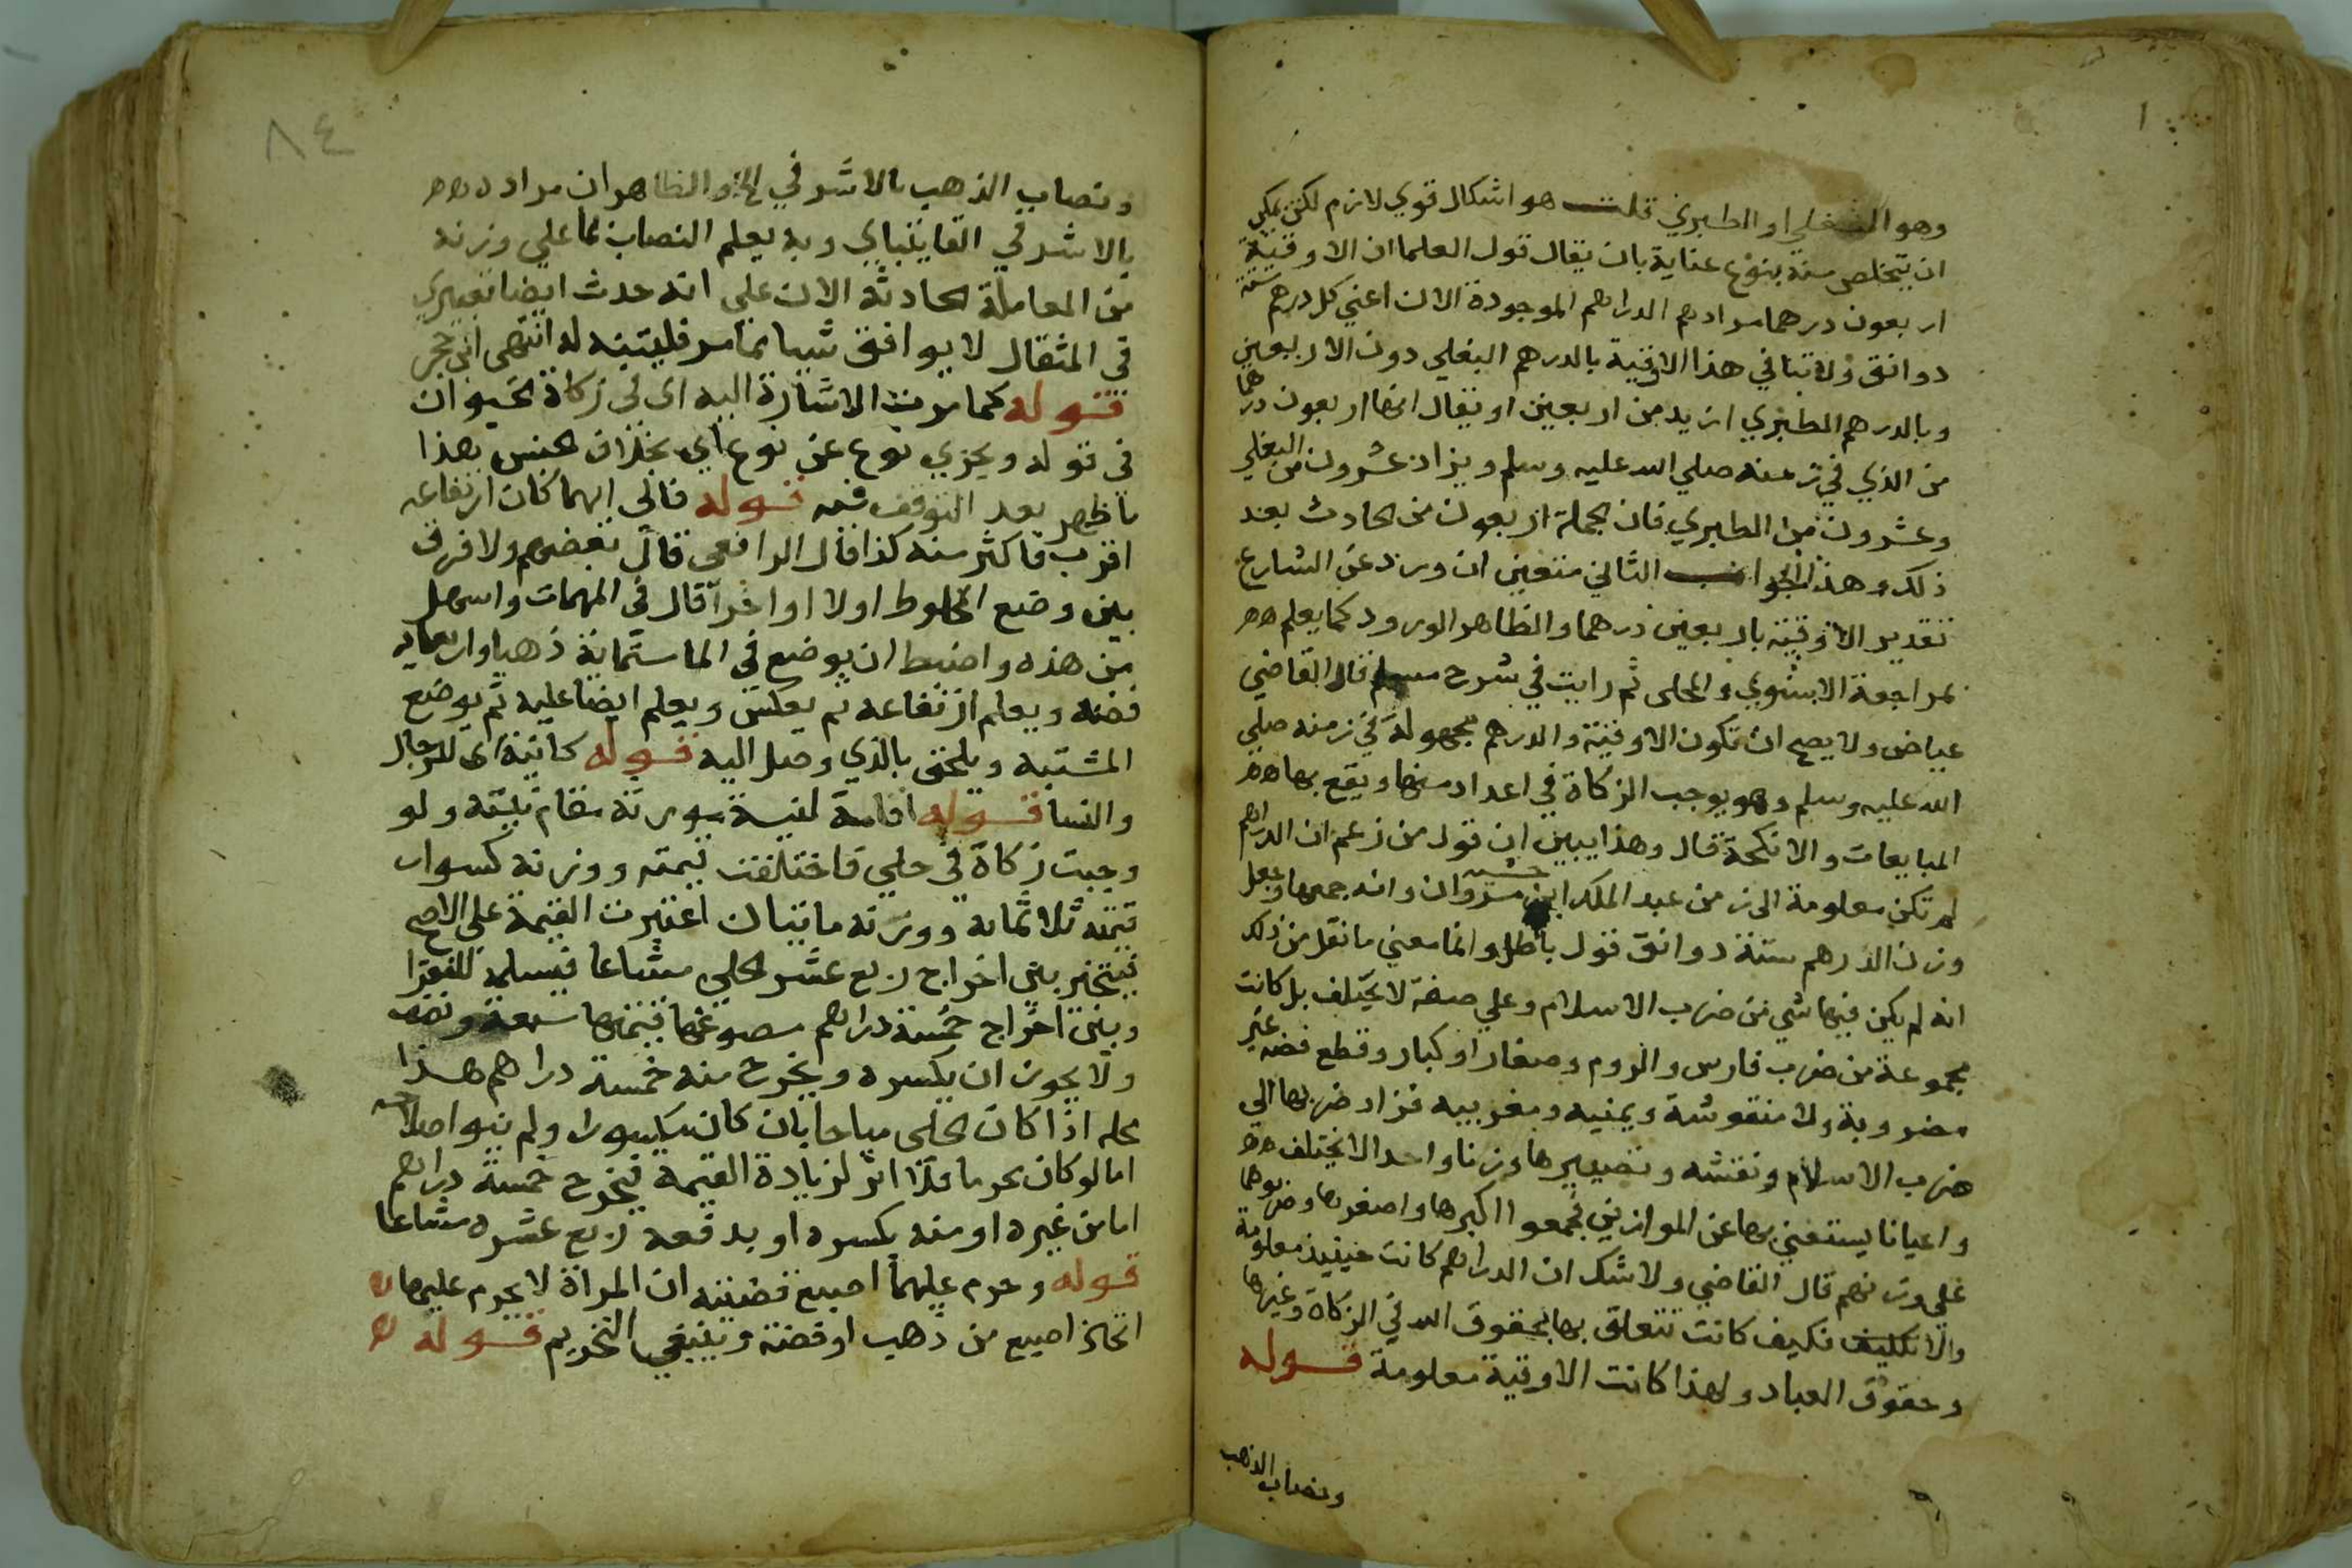 وهو البغلي او الطبري قلت هو اشكال قوي لازم لكن يمكن
ان يتخلص منه بنوع عناية بان يقال قول العلما ان الاوقية
اربعون درهما مرادهم الدراهم الموجودة الان اعني كل درهم ستة
دوانق ولا تنافي هذا الاوقية بالدرهم البغلي دون الاربعين
وبالدرهم الطبري ازيد من اربعين او يقال انها اربعون درهما
من الذي في زمنه صلي الله عليه وسلم ويزاد عشرون من البغلي
وعشرون من الطبري فان الجملة اربعون من الحادث بعد
ذلك وهذا الجواب الثاني متعين ان ورد عن الشارع
تقدير الاوقية باربعين درهما والظاهر الورود كما يعلم
بمراجعة الاسنوي والمحلى ثم رايت في شرح مسلم قال القاضي
عياض ولا يصح ان تكون الاوقية والدرهم مجهولة في زمنه صلي
الله عليه وسلم وهو يوجب الزكاة في اعداد منها ويقع بها
المبايعات والانكحة قال وهذا يبين ان قول من زعم ان الدراهم
لم تكن معلومة الى زمن عبد الملك ابن مروان وانه جمعها وجعل
وزن الدرهم ستة دوانق قول باطل وانما معني ما نقل من ذلك
انه لم يكن فيها شي من ضرب الاسلام وعلي صفة لا يختلف بل كانت
مجموعة من ضرب فارس والروم وصغار او كبار وقطع فضة غير
مضروبة ولا منقوشة ويمنيه ومغربيه فزاد ضربها الي
ضرب الاسلام ونقشه وتصييرها وزنا واحدا لا يختلف
واعيانا يستغني بها عن الموازين فجمعوا اكبرها واصغرها وضربوها
علي وزنهم قال القاضي ولا شك ان الدراهم كانت حينيذ معلومة
والا فكيف كانت تتعلق بها بحقوق الله في الزكاة وغيرها
وحقوق العباد ولهذا كانت الاوقية معلومة قوله
ونصاب الذهب
٨٤
ونصاب الذهب بالاشرفي الخ والظاهر ان مراده
بالاشرفي القايتباي وبه يعلم النصاب بما علي وزنه
من المعاملة الحادثة الان علي انه حدث ايضا تغيير
في المثقال لا يوافق شيا مما مر فليتنبه له انتهى ابن حجر
قوله كما مرت الاشارة اليه اي في زكاة الحيوان
في قوله ويجزي نوع عن نوع اي بخلاف الجنس بهذا
ما ظهر بعد التوقف فيه قوله فالى ايهما كان ارتفاعه
اقرب فاكثر منه كذا قال الرافعي قال بعضهم ولا فرق
بين وضع المخلوط اولا او اخرا قال في المهمات واسهل
من هذه واضبط ان يوضع في الما ستماية ذهبا واربعمايه
فضه ويعلم ارتفاعه ثم يعكس ويعلم ايضا عليه ثم يوضع
المشتبه ويلحق بالذي وصل اليه قوله كانية اى للرجال
والنسا قوله اقامة لنية مورثه مقام نيته ولو
وجبت زكاة في حلي فاختلفت قيمته ووزنه كسوار
قيمته ثلاثماىه ووزنه مايتان اعتبرت القيمة علي الاصح
فيتخير بين اخراج ربع عشر الحلي مشاعا فيسلمه للفقرا
وبين اخراج خمسة دراهم مصوغها قيمتها سبعة ونصف
ولا يجوز ان يكسره ويخرج منه خمسة دراهم هذا
محله اذا كان الحلي مباحا بان كان يكسور ولم ينو اصلاحه
اما لو كان محرما فلا اثر لزيادة القيمة فيخرج خمسة دراهم
اما من غيره او منه بكسره او بدفعه ربع عشره مشاعا
قوله وحرم عليهما اصبع قضيته ان المراة لا يحرم عليها
اتخاذ اصبع من ذهب او فضة وينبغي التحريم قوله